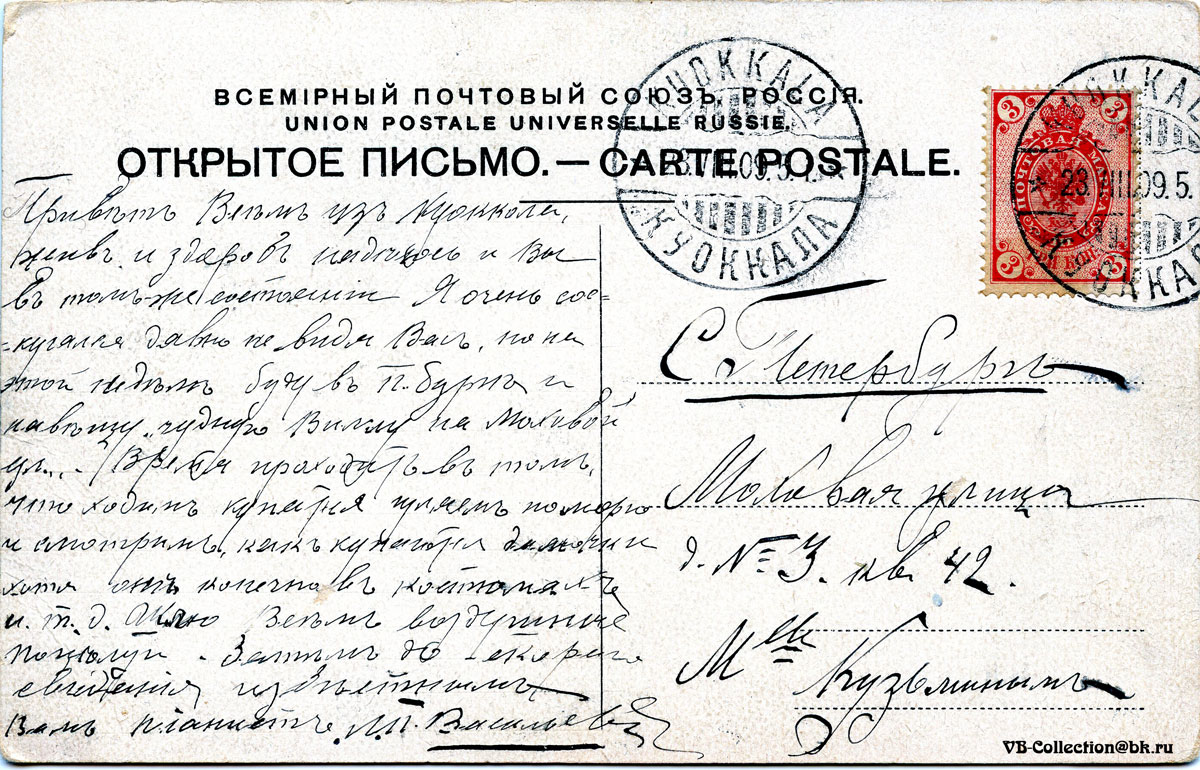 ВСЕМІРНЫЙ ПОЧТОВЫЙ СОЮЗЪ. РОССІЯ.
UNION POSTALE UNIVERSELLE RUSSIE.
ОТКРЫТОЕ ПИСЬМО. — CARTE POSTALE.
KUOKKALA
23.VIII.09.5
КУОККАЛА
3 3
ПОЧТОВАЯ МАРКА
3 3
KUOKKALA
23.VIII.09.5
Привѣтъ Всѣмъ изъ Куоккола,
живъ и здоровъ надѣюсь и Вы
въ томъ же состояніи Я очень сос-
=кучался давно не видя Васъ, но на
этой недѣлѣ буду въ П. бургѣ и
навѣщу „чудную Виллу на Моховой
ул... Время проходитъ въ томъ,
что ходимъ купатся гуляемъ по морю
и смотримъ, какъ купаются дамочки
хотя онѣ конечно въ костюмахъ
и. т. д. Шлю Всѣмъ воздушные
поцѣлуи. Затѣмъ до скораго
свиданія извѣстный
Вамъ піанистъ. Васильевъ
С Петербургъ
Моховая улица
д. № 3. кв 42.
Mlle Кузьминымъ
VB-Collection@bk.ru